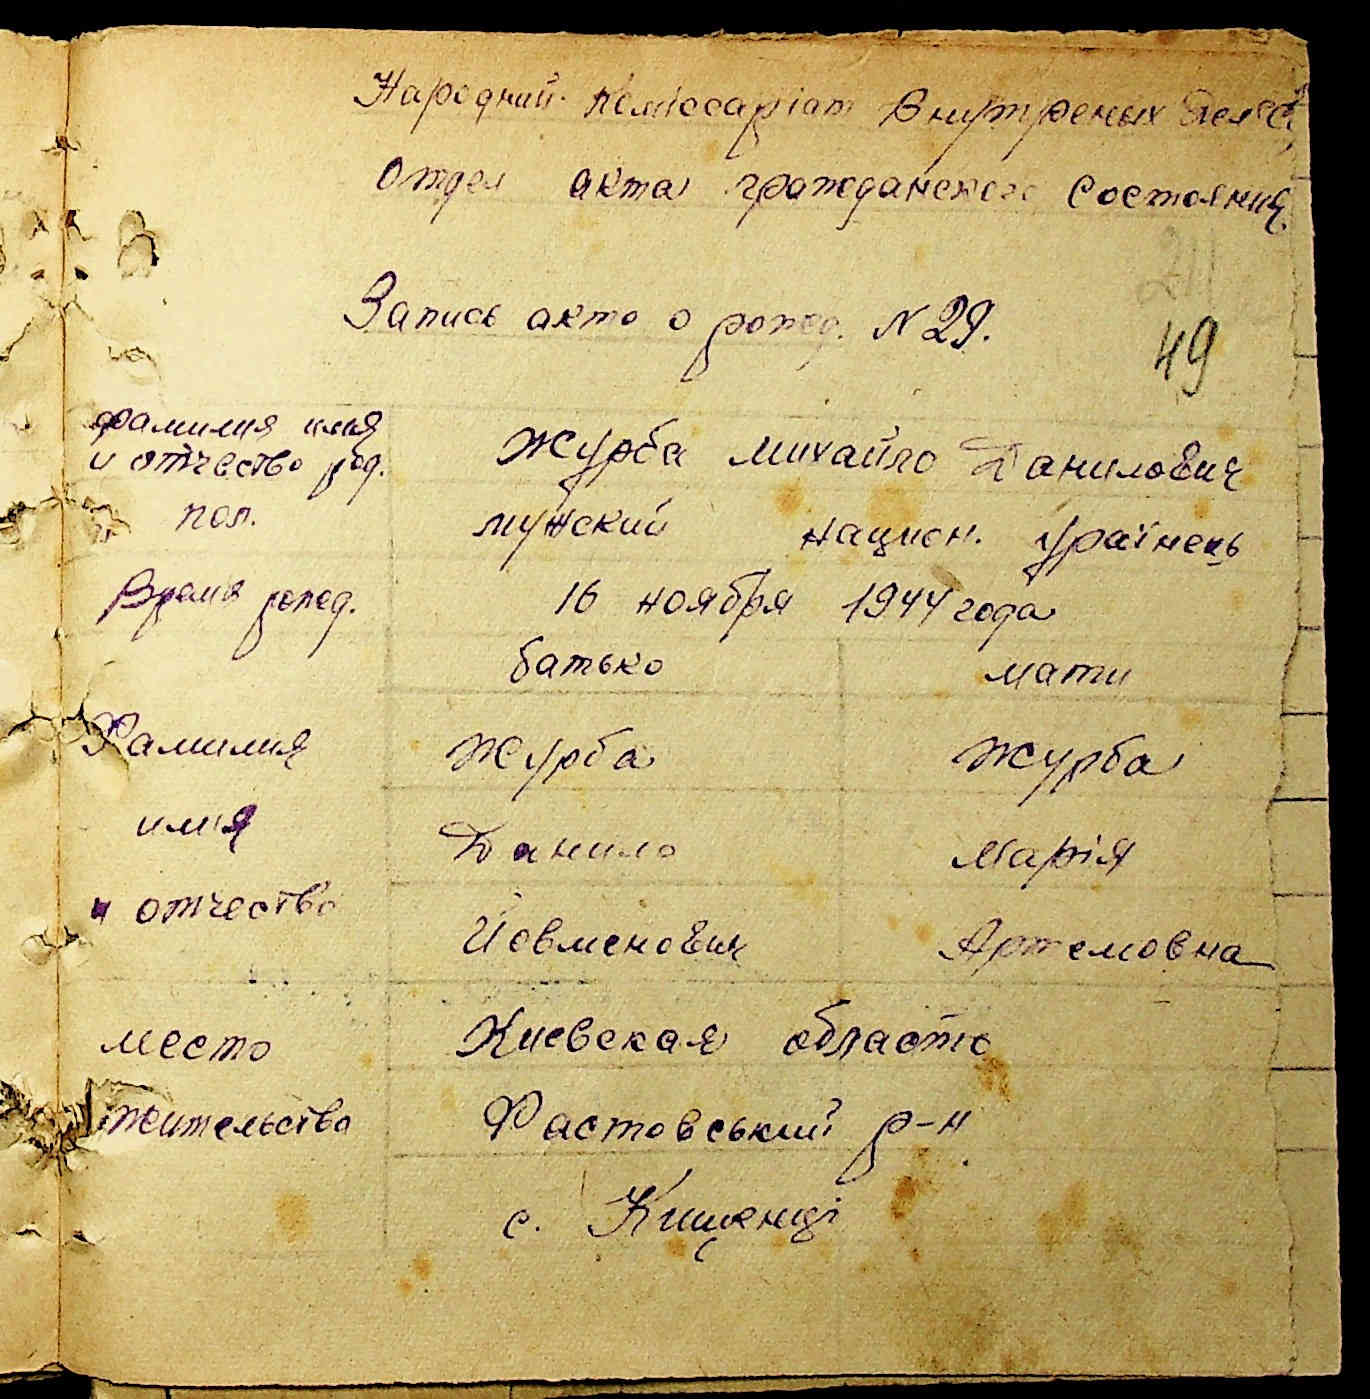 Народний Комісаріат Внутреных Дел
Отдел акта гражданского состояния
211
Запись акта о рожд. N 29.
49
фамилия имя
и отчество род. Журба Михайло Данилович
пол. мужский национ. українець
Время рожд. 16 ноября 1944 года
батько мати
Фамилия Журба Журба
имя Данило Марія
и отчество Йовменович Артемовна
место Киевская область
жительства Фастовський р-н
с. Кищенці